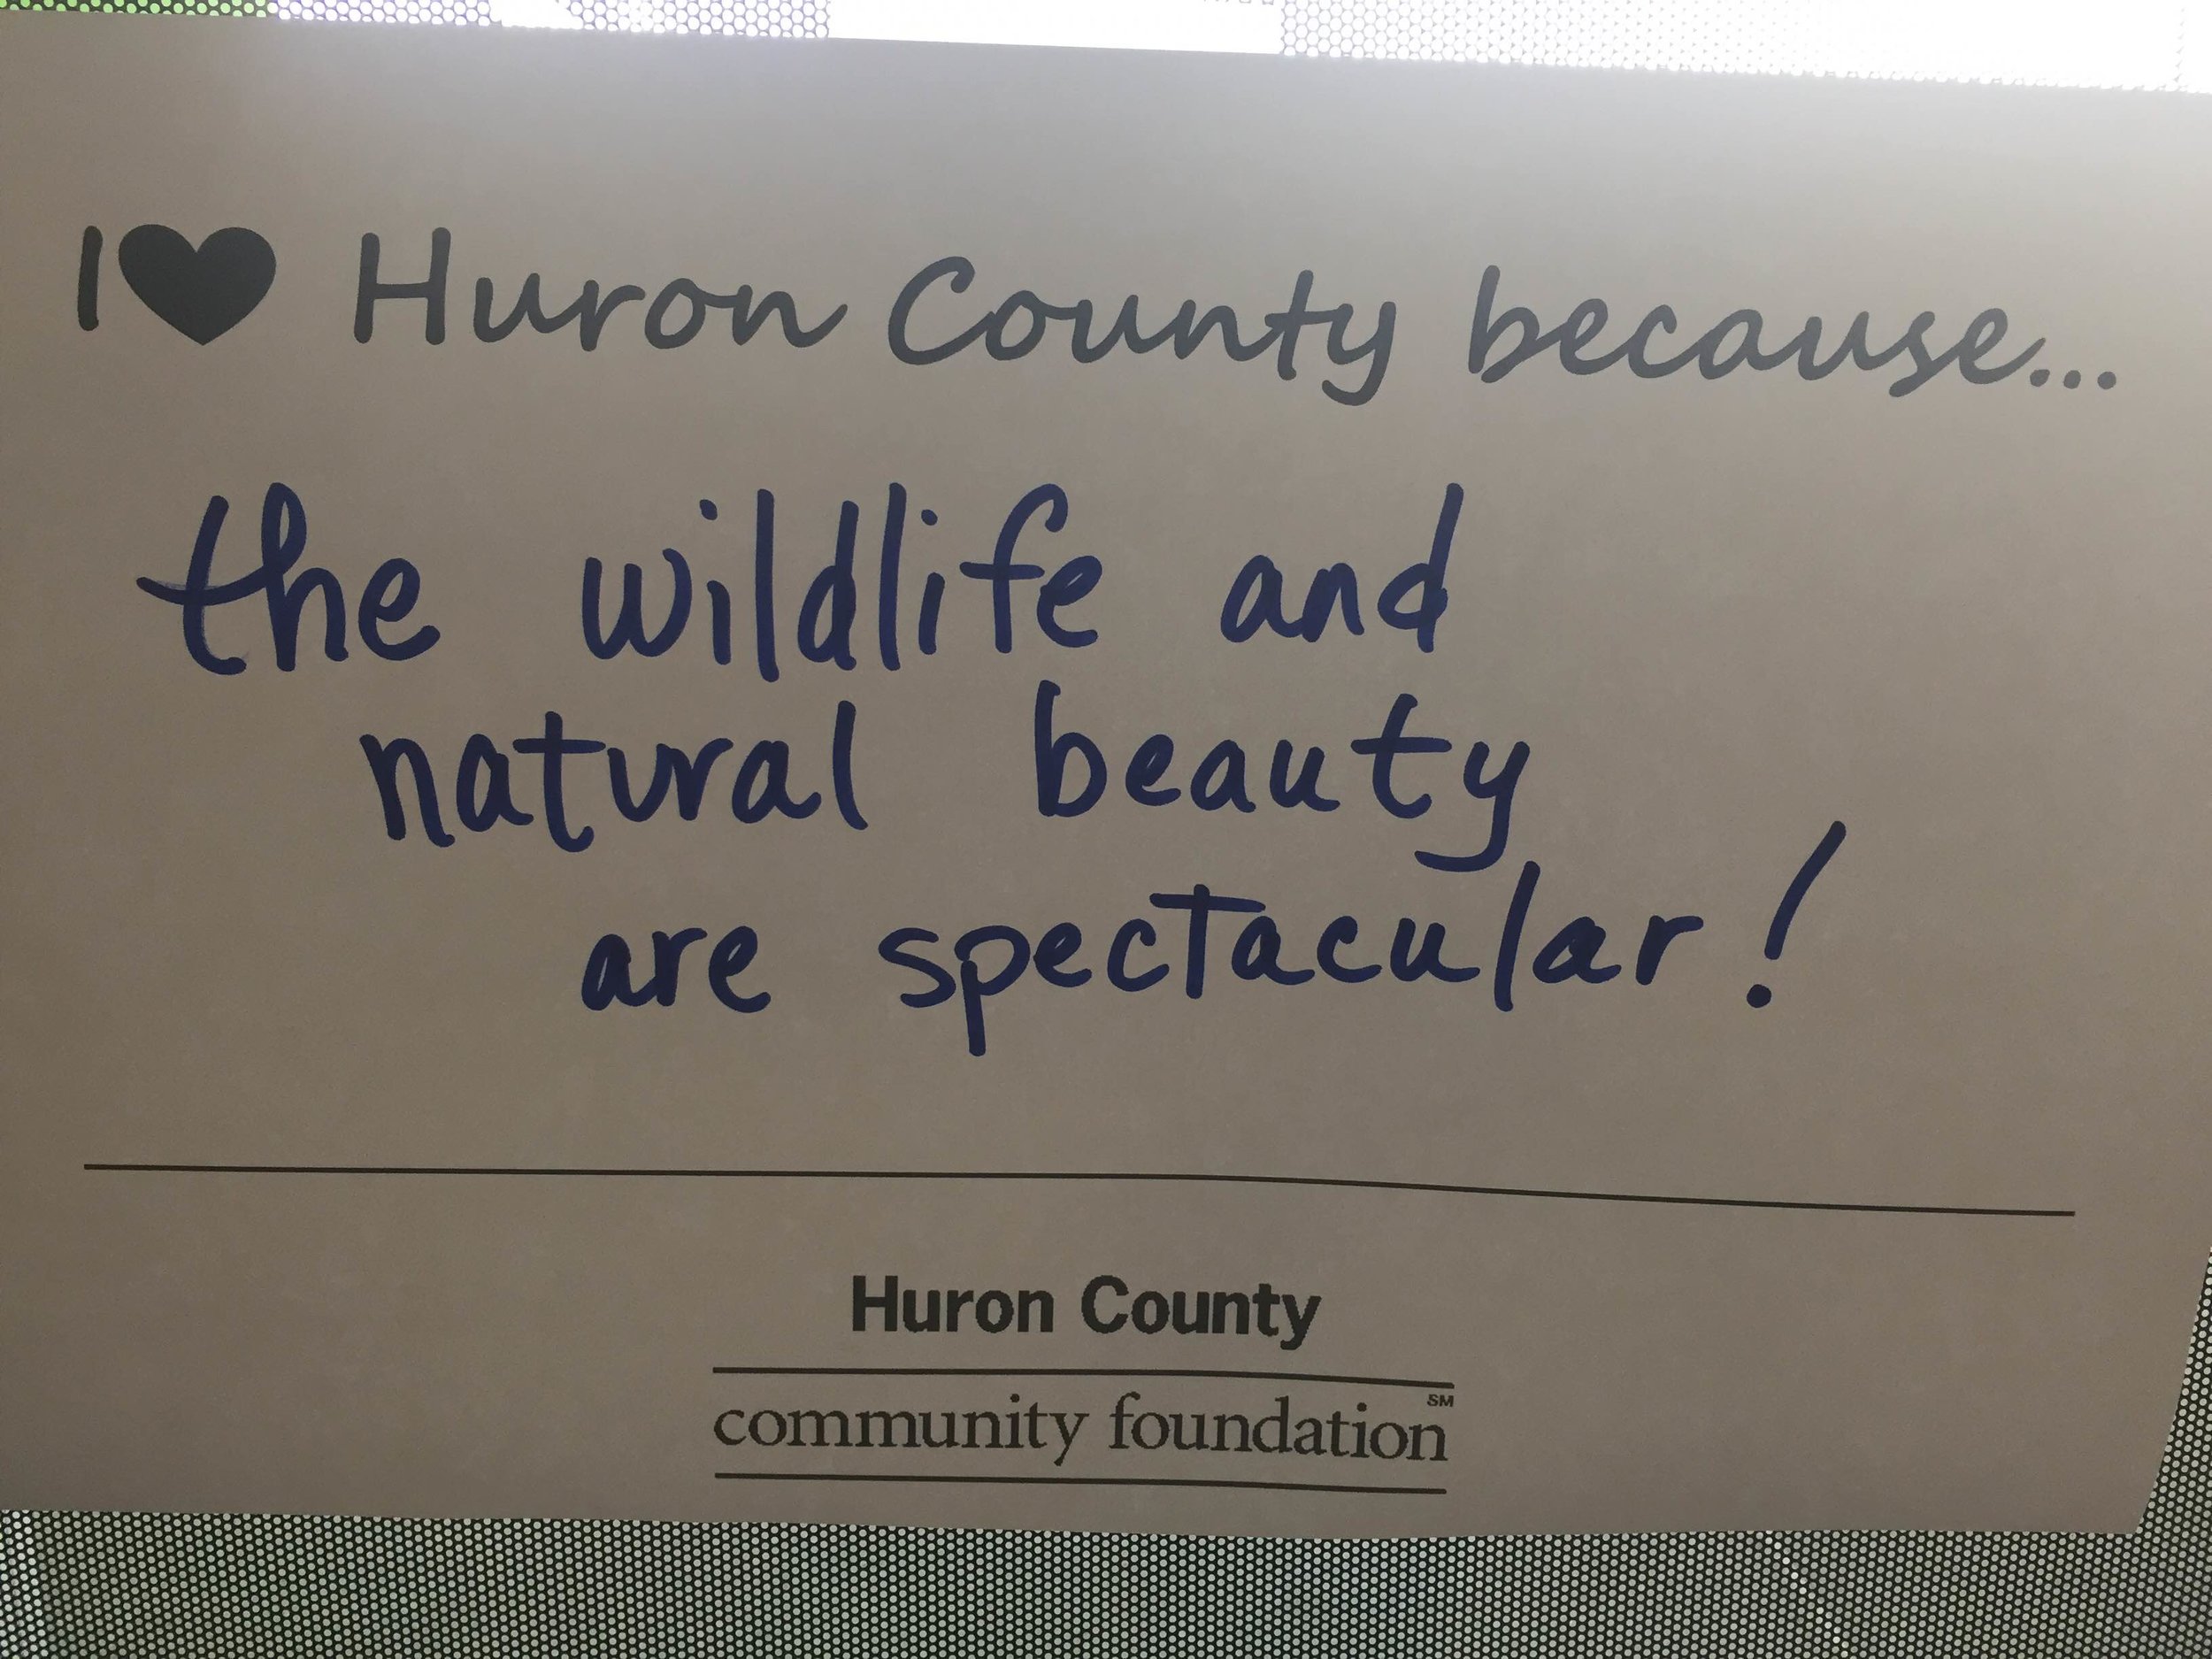 I♥ Huron County because...
the wildlife and
natural beauty
are spectacular!
Huron County
community foundation℠